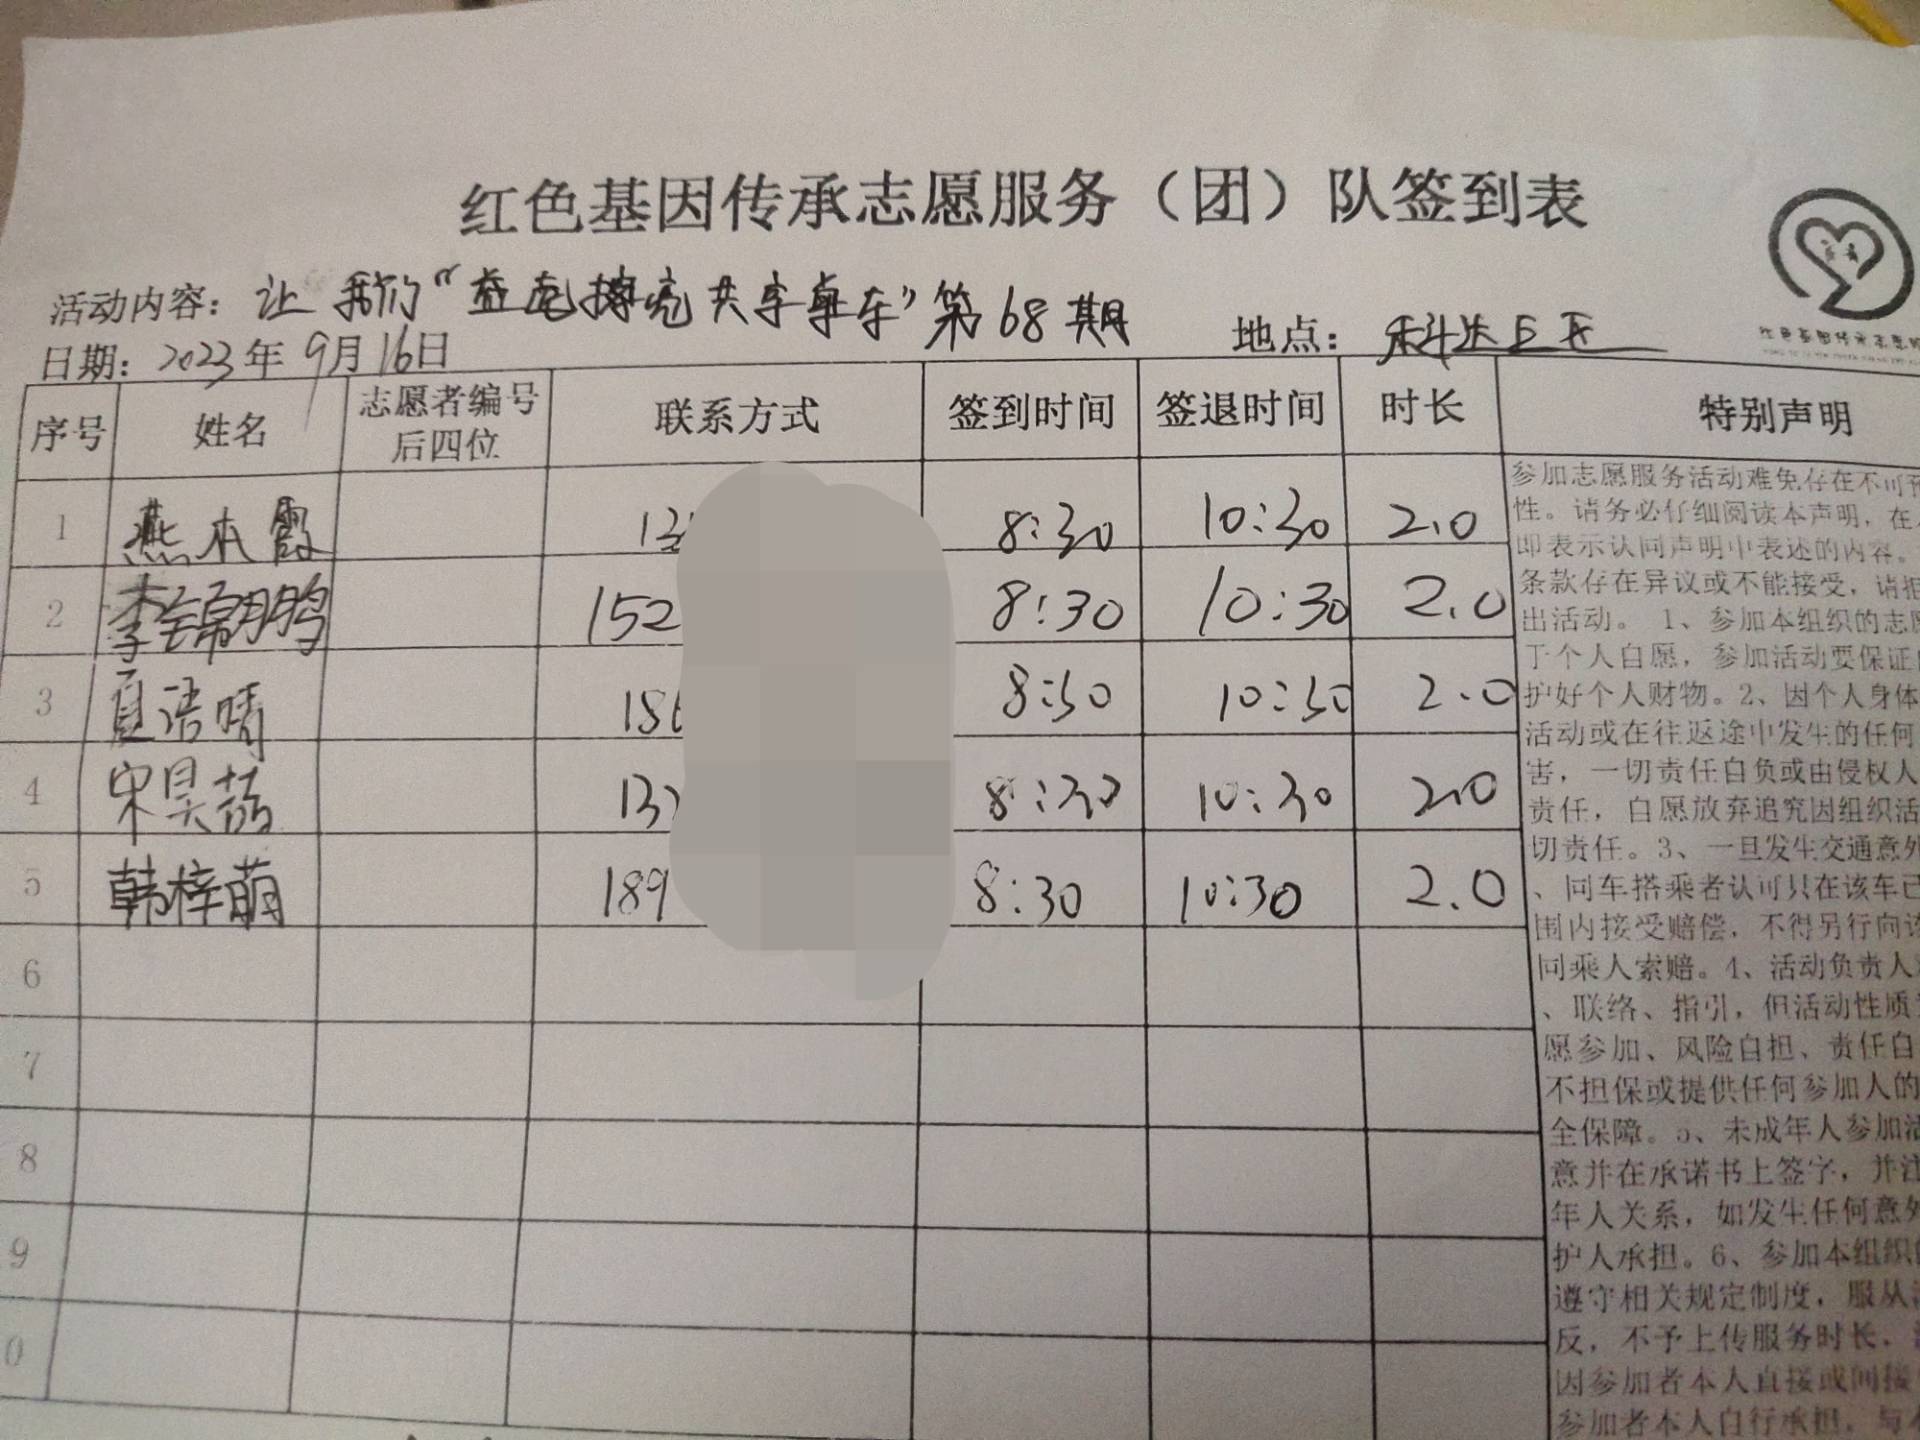 红色基因传承志愿服务（团）队签到表
活动内容：让我们“益起擦亮共享单车”第68期
日期：2023年9月16日 地点：
序号 姓名 志愿者编号后四位 联系方式 签到时间 签退时间 时长 特别声明
1 燕本霞 8:30 10:30 2.0
2 李锦鹏 152 8:30 10:30 2.0
3 夏语晴 18 8:30 10:30 2.0
4 宋昊 13 8:30 10:30 2.0
5 韩梓萌 189 8:30 10:30 2.0
6
7
8
9
0
参加志愿服务活动难免存在不可预
性。请务必仔细阅读本声明，在
即表示认同声明中表述的内容。
条款存在异议或不能接受，请拒
出活动。 1、参加本组织的志愿
于个人自愿，参加活动要保证
护好个人财物。2、因个人身体
活动或在往返途中发生的任何
害，一切责任自负或由侵权人
责任，自愿放弃追究因组织活
切责任。3、一旦发生交通意外
、同车搭乘者认可只在该车已
围内接受赔偿，不得另行向该
同乘人索赔。4、活动负责人
、联络、指引，但活动性质
愿参加、风险自担、责任自
不担保或提供任何参加人的
全保障。5、未成年人参加活
意并在承诺书上签字，并注
年人关系，如发生任何意外
护人承担。6、参加本组织的
遵守相关规定制度，服从
反，不予上传服务时长，
因参加者本人直接或间接
参加者本人自行承担，与本